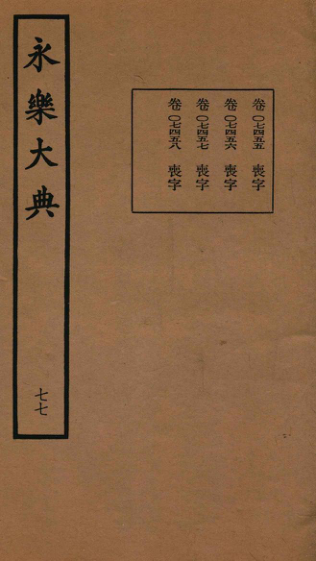 永樂大典
七七
卷〇七四五五 喪字
卷〇七四五六 喪字
卷〇七四五七 喪字
卷〇七四五八 喪字